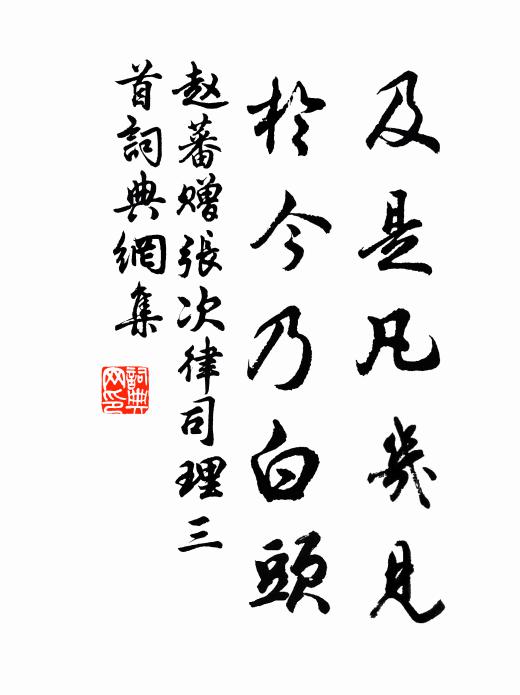 及是凡幾見
於今乃白頭
赵蕃赠張次律司理三
首詞典網集
詞典网印